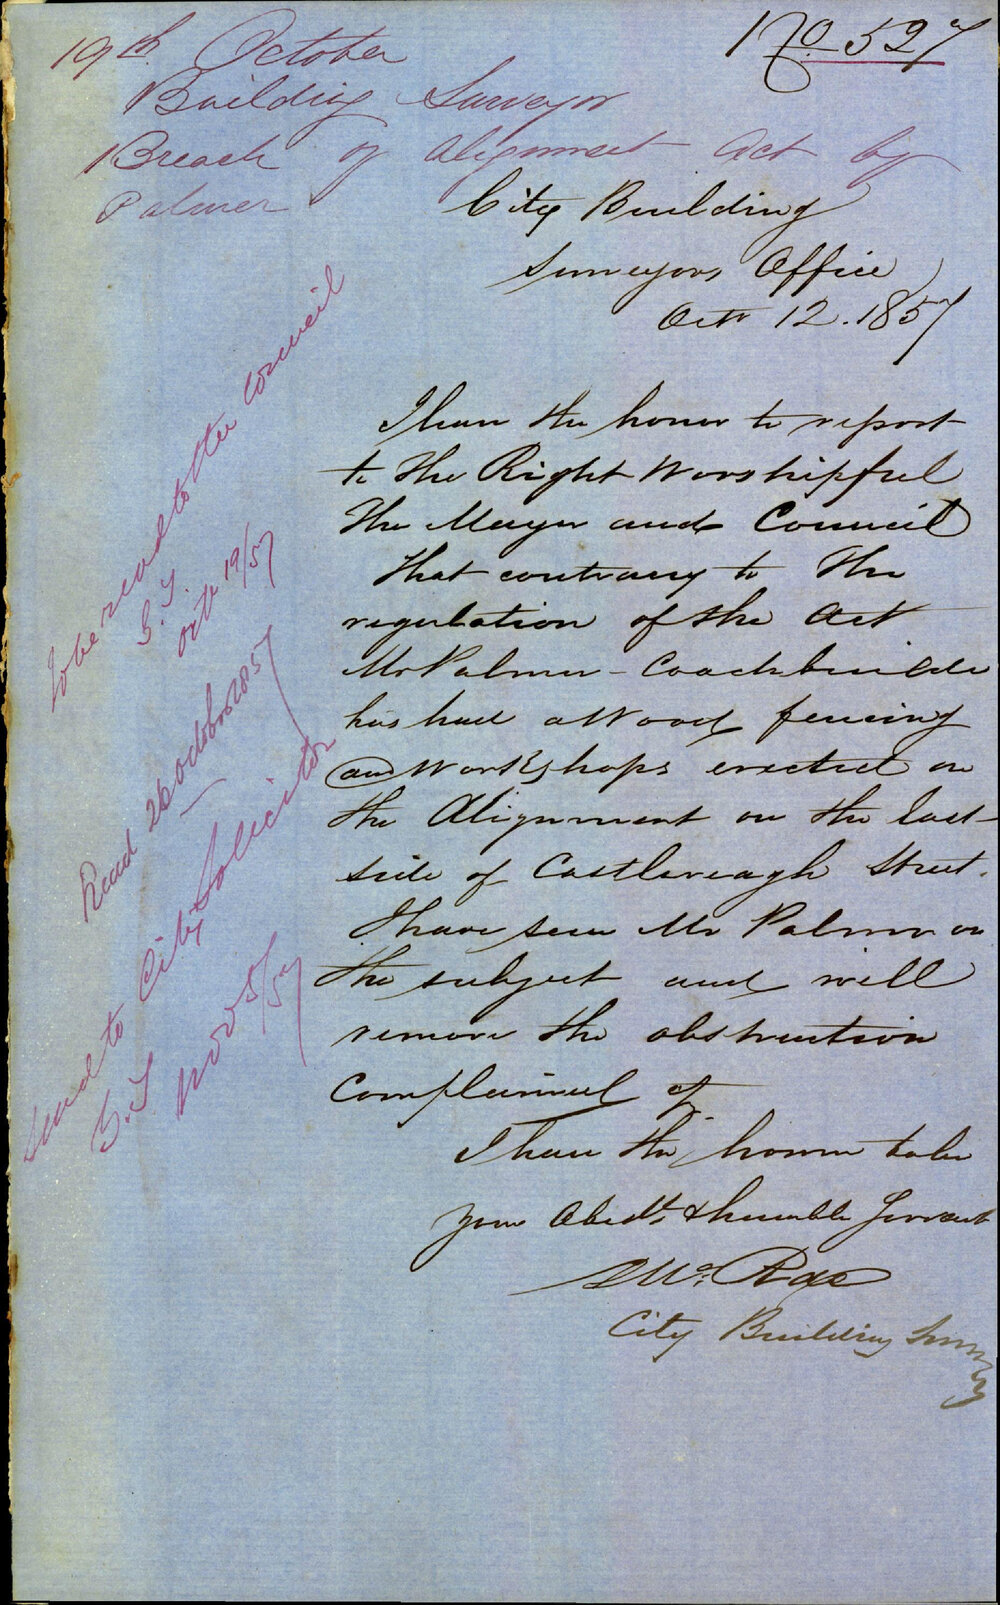 No 527
19th October
Building Surveyor
Breach of Alignment Act by
Palmer
City Building
Surveyors Office
Octr 12. 1857
I have the honor to report
to the Right Worshipful
The Mayor and Council
that contrary to the
regulation of the Act
Mr Palmer - Coachbuilder
has had a Wood fencing
and Workshops erected on
the Alignment on the East
side of Castlereagh Street.
I have seen Mr Palmer on
the subject and will
remove the obstruction
Complained of.
I have the honor to be
your Obedt & humble Servant
City Building Surveyor
To be read to the Council
G. T.
Octr 19/57
Read 26 October 1857
Send to City Solicitor
G. T
Nov 5/57